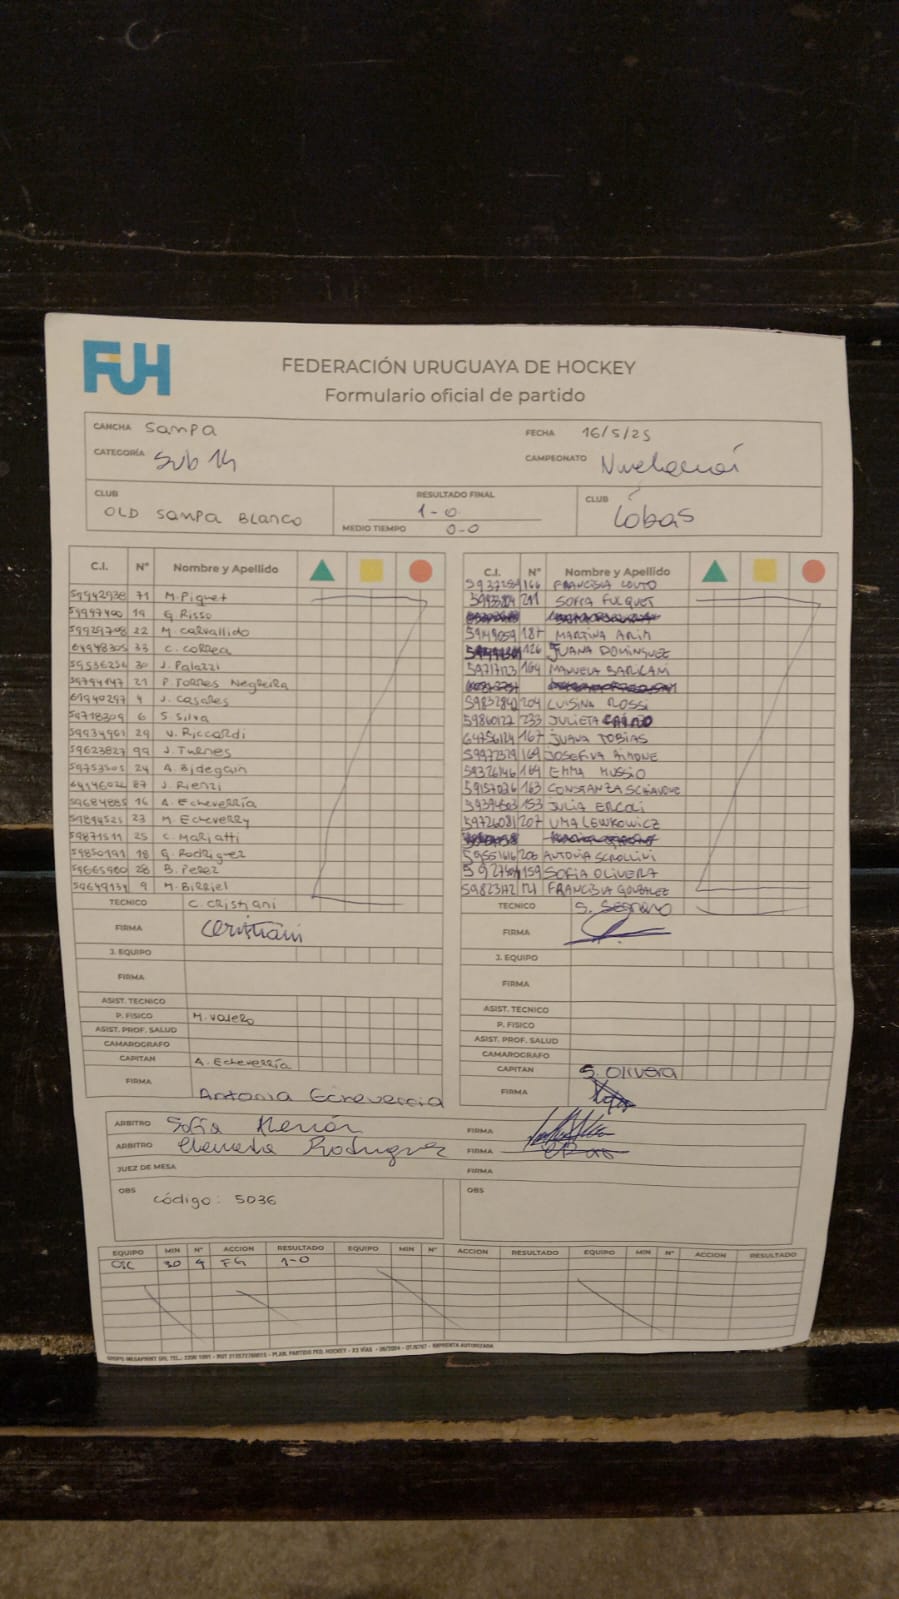 FUH
FEDERACIÓN URUGUAYA DE HOCKEY
Formulario oficial de partido
CANCHA Sampa
FECHA 16/5/25
CATEGORÍA Sub 14
CAMPEONATO
CLUB
OLD SAMPA BLANCO
RESULTADO FINAL
1-0
MEDIO TIEMPO 0-0
CLUB
Lobas
C.I. N° Nombre y Apellido
59942938 71 M. Piquet
59947400 19 G. Risso
59929708 22 M. Carvallido
33 C. Correa
59536254 30 J. Palazzi
21 P. Torres Negreira
61940297 4 J. Casales
54718309 6 S. Silva
59934961 29 V. Riccardi
59623827 99 J. Turnes
59753505 24 A. Bidegain
87 J. Rienzi
59684885 16 A. Echeverría
59894521 23 M. Echeverry
59871511 25 C. Mariatti
59850191 18 G. Rodriguez
59665980 28 B. Perez
59649134 9 M. Birriel
TECNICO C. Cristiani
FIRMA Cristiani
J. EQUIPO
FIRMA
ASIST. TECNICO
P. FISICO M. Valero
ASIST. PROF. SALUD
CAMAROGRAFO
CAPITAN A. Echeverría
FIRMA Antonia Echeverria
C.I. N° Nombre y Apellido
166 FRANCISCA COUTO
211 SOFIA FULQUET
59149059 187 MARTINA ARIM
126 JUANA DOMINGUEZ
59717123 164 MANUELA
59832842 204 LUISINA ROSSI
59860122 233 JULIETA
64756124 167 JUANA TOBIAS
59972379 169 JOSEFINA
59326146 184 EMMA MUSSIO
59157036 163 CONSTANZA
153 JULIA ERCOLI
59726081 207 UMA LEWKOWICZ
206 ANTONIA SCROLLINI
159 SOFIA OLIVERA
59823172 121 FRANCISCA GONZALEZ
TECNICO S.
FIRMA
J. EQUIPO
FIRMA
ASIST. TECNICO
P. FISICO
ASIST. PROF. SALUD
CAMAROGRAFO
CAPITAN S. Olivera
FIRMA
ARBITRO Sofía
FIRMA
ARBITRO Rodriguez
FIRMA
JUEZ DE MESA
FIRMA
OBS
código: 5036
OBS
EQUIPO MIN N° ACCION RESULTADO EQUIPO MIN N° ACCION RESULTADO EQUIPO MIN N° ACCION RESULTADO
OSC 30 9 FG 1-0